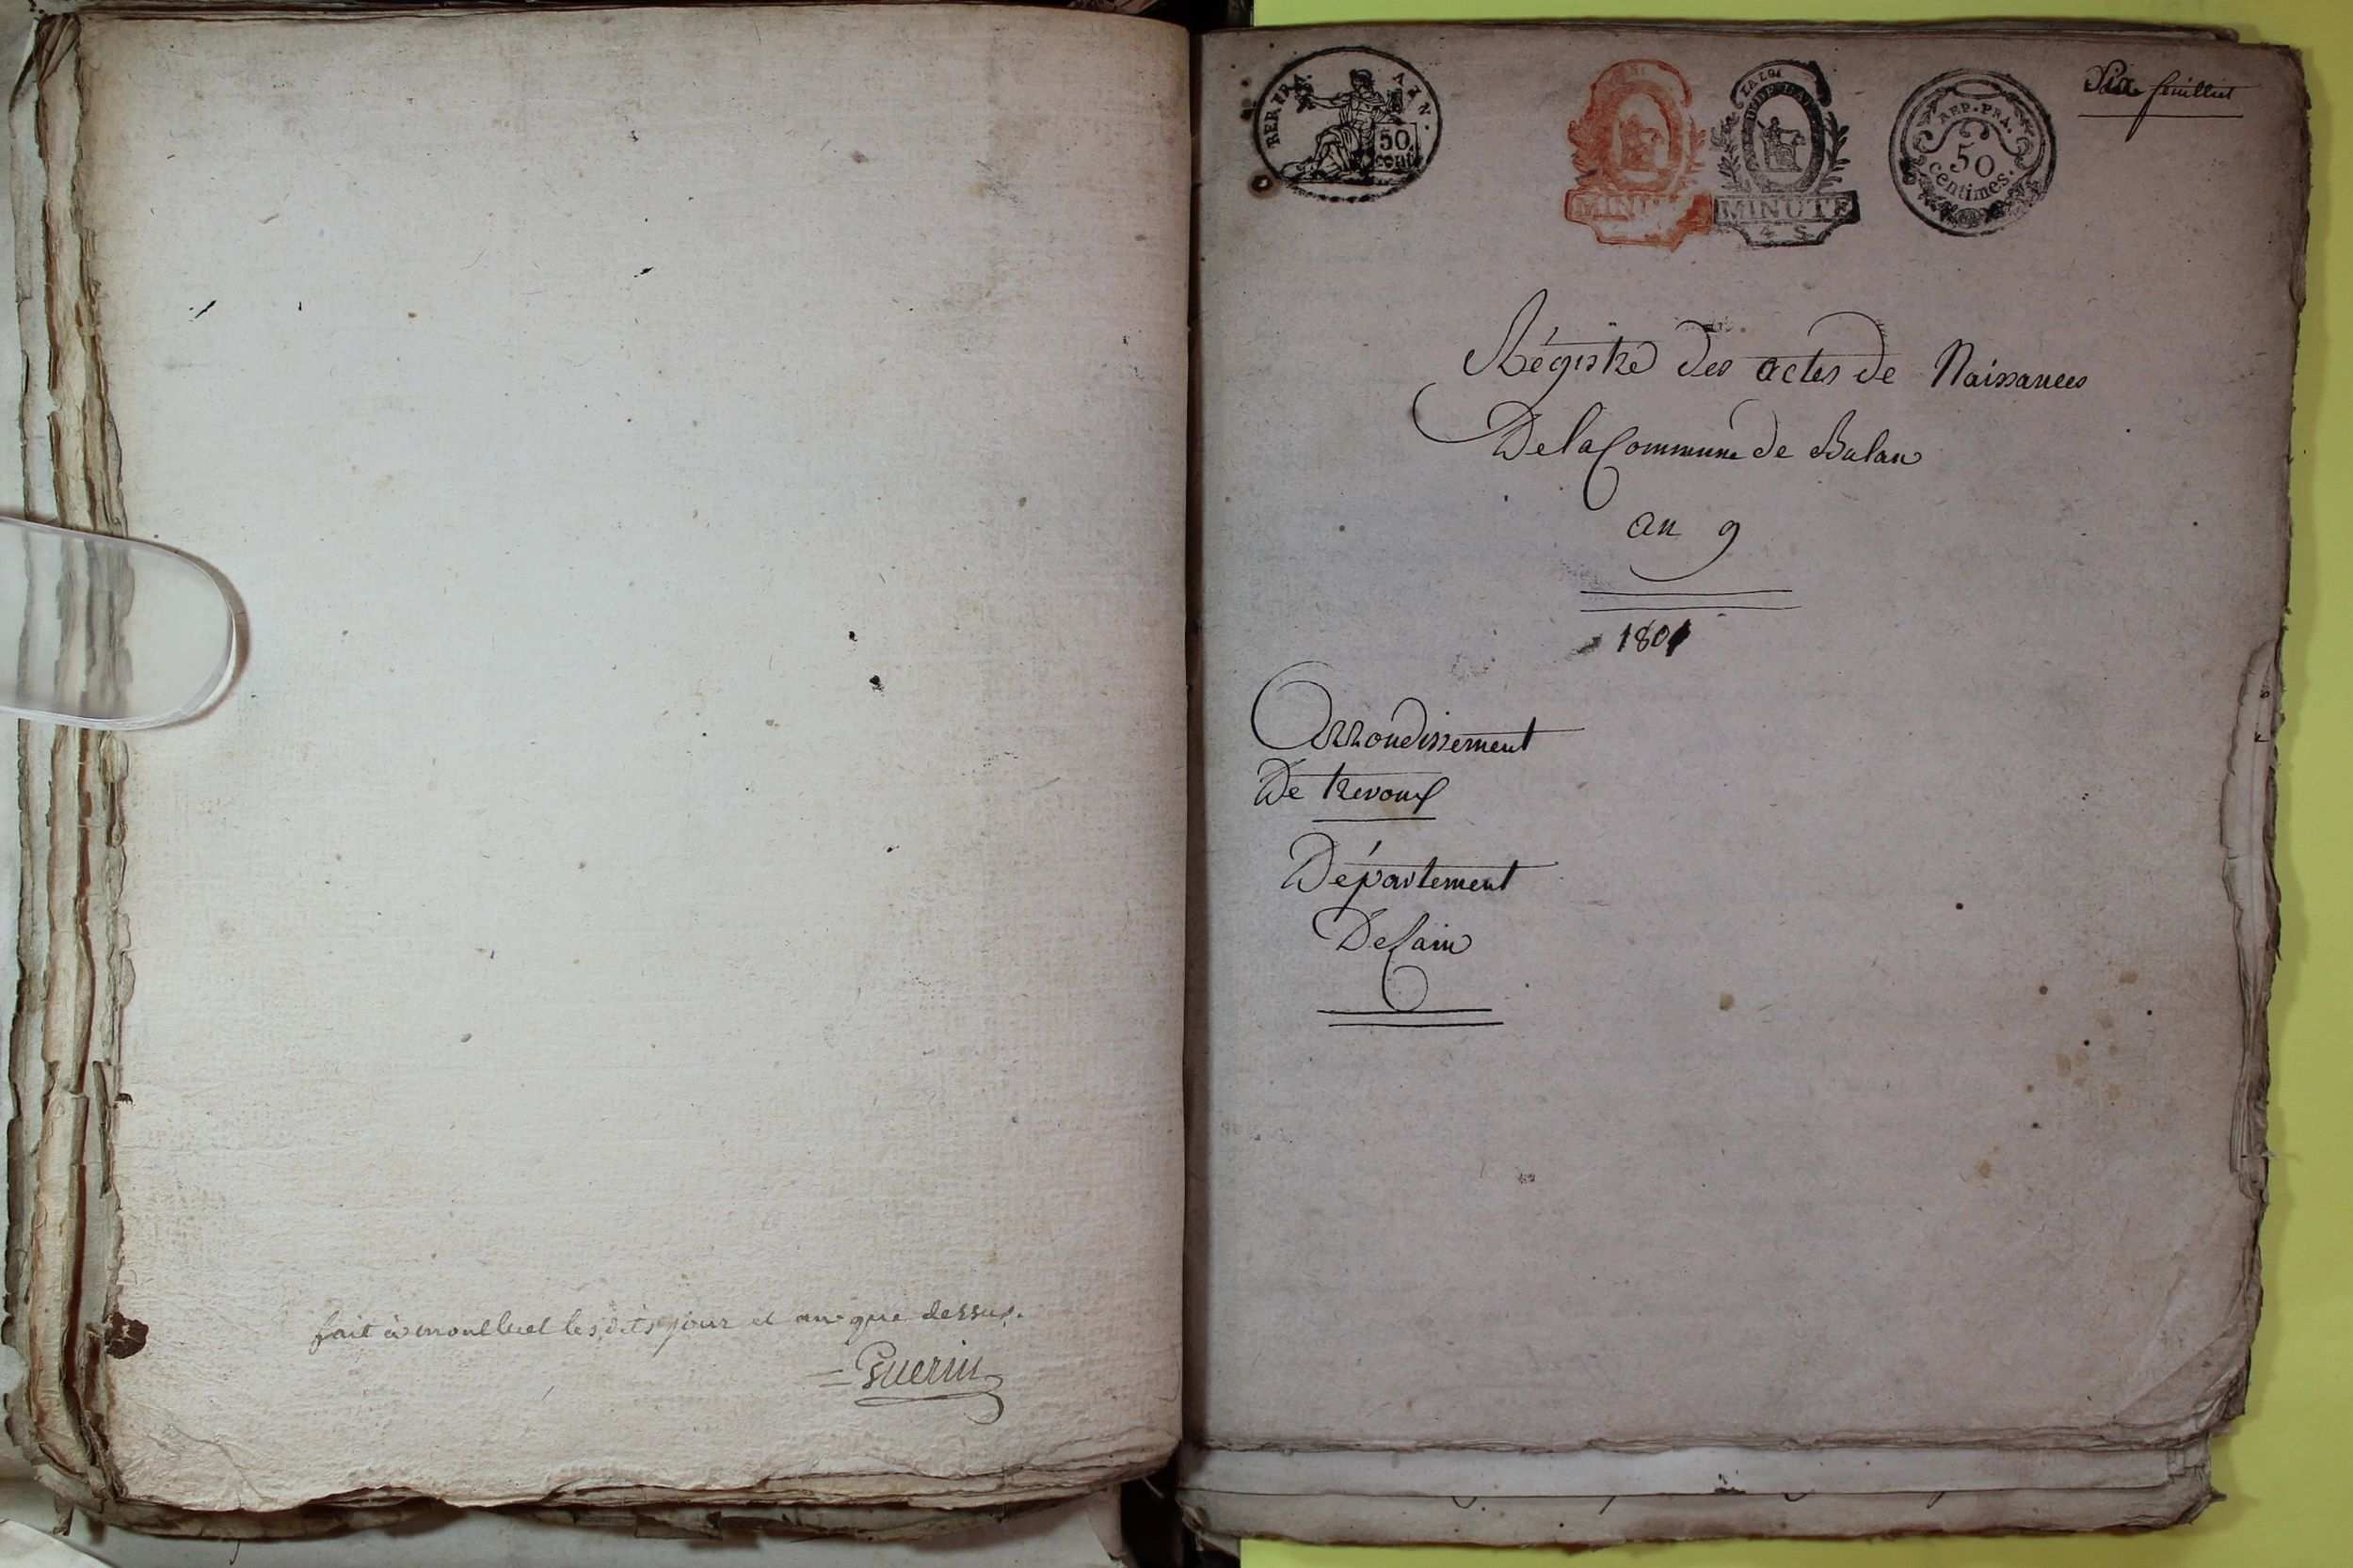 fait à montluel les dits jour et an que dessus.
Guerin
REP. FRA. AIN.
50 cent.
MINUTE
LA LOI
MINUTE
4 S
REP. FRA.
50
centimes.
Six feuillet
Régistre des actes de Naissances
De la Commune de Balan
an 9
1801
Arrondissement
De trevoux
Département
De lain